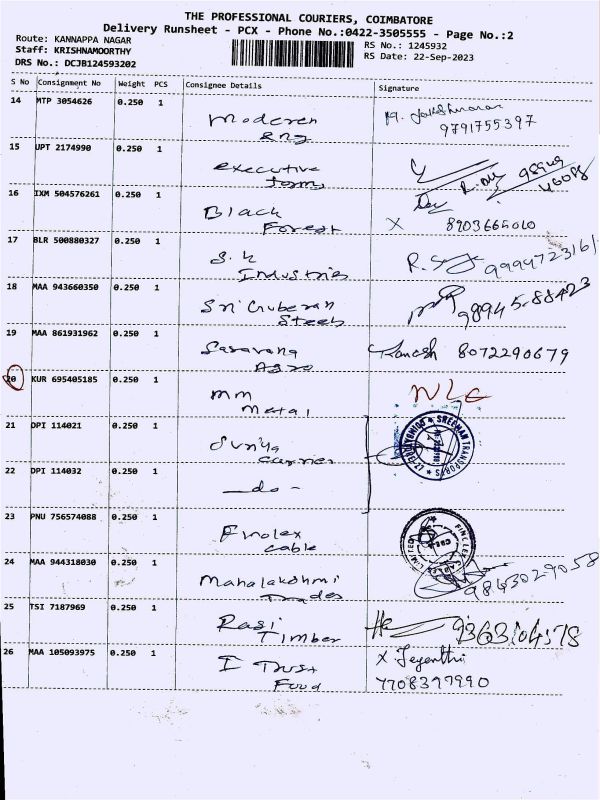 THE PROFESSIONAL COURIERS, COIMBATORE
Delivery Runsheet - PCX - Phone No.:0422-3505555 - Page No.:2
Route: KANNAPPA NAGAR
RS No.: 1245932
Staff: KRISHNAMOORTHY
RS Date: 22-Sep-2023
DRS No.: DCJB124593202
S No Consignment No Weight PCS Consignee Details Signature
14 MTP 3054626 0.250 1 Moderen
Eng
9791755397
15 UPT 2174990 0.250 1 executive
16 IXM 504576261 0.250 1 Black
Forest
X 8903665010
17 BLR 500880327 0.250 1 S.K
Industries
9994723161
18 MAA 943660350 0.250 1 Sri Guberan
Steels
98945-88423
19 MAA 861931962 0.250 1 Saravana
Agro
8072290679
20 KUR 695405185 0.250 1 MM
Metal
NLC
21 DPI 114021 0.250 1 Surya
Carrier
SREEMAN TRANSPORTS
22 DPI 114032 0.250 1 -do-
23 PNU 756574088 0.250 1 Finolex
cable
24 MAA 944318030 0.250 1 Mahalakshmi
9843029058
25 TSI 7187969 0.250 1 Rasi
Timber
9363104578
26 MAA 105093975 0.250 1 I Trust
Food
X Jeyenthi
7708397990